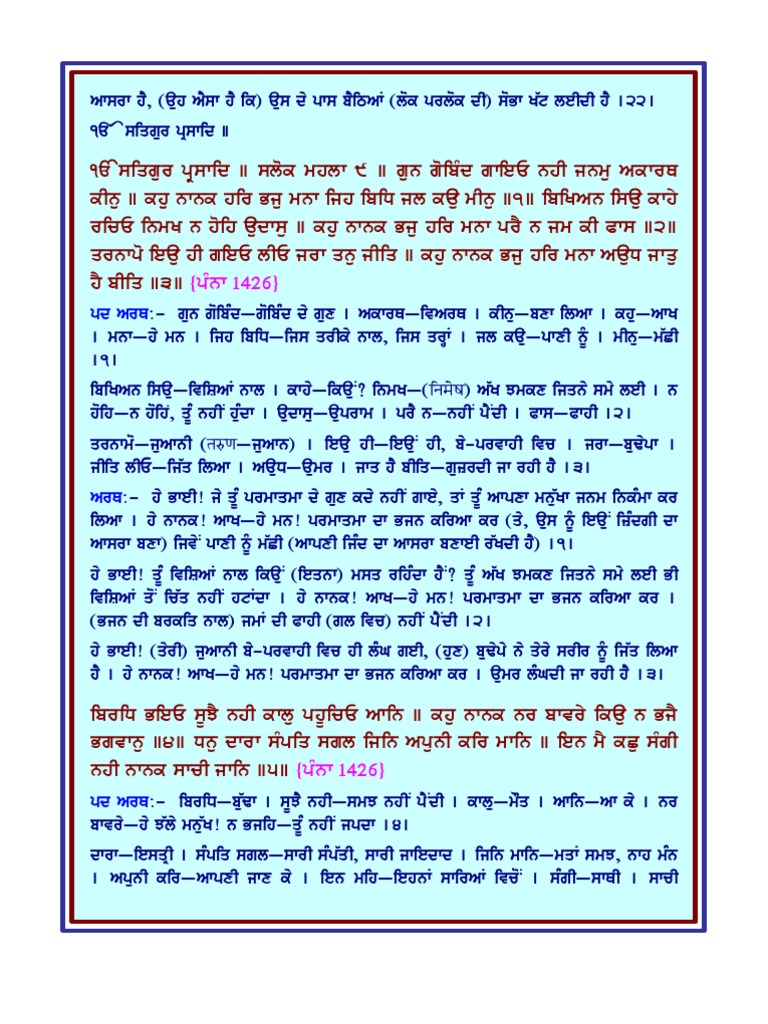 ਆਸਰਾ ਹੈ, (ਉਹ ਐਸਾ ਹੈ ਕਿ) ਉਸ ਦੇ ਪਾਸ ਬੈਠਿਆਂ (ਲੋਕ ਪਰਲੋਕ ਦੀ) ਸੋਭਾ ਖੱਟ ਲਈਦੀ ਹੈ ।੨੨।
ੴ ਸਤਿਗੁਰ ਪ੍ਰਸਾਦਿ ॥
ੴ ਸਤਿਗੁਰ ਪ੍ਰਸਾਦਿ ॥ ਸਲੋਕ ਮਹਲਾ ੯ ॥ ਗੁਨ ਗੋਬਿੰਦ ਗਾਇਓ ਨਹੀ ਜਨਮੁ ਅਕਾਰਥ
ਕੀਨੁ ॥ ਕਹੁ ਨਾਨਕ ਹਰਿ ਭਜੁ ਮਨਾ ਜਿਹ ਬਿਧਿ ਜਲ ਕਉ ਮੀਨੁ ॥੧॥ ਬਿਖਿਅਨ ਸਿਉ ਕਾਹੇ
ਰਚਿਓ ਨਿਮਖ ਨ ਹੋਹਿ ਉਦਾਸੁ ॥ ਕਹੁ ਨਾਨਕ ਭਜੁ ਹਰਿ ਮਨਾ ਪਰੈ ਨ ਜਮ ਕੀ ਫਾਸ ॥੨॥
ਤਰਨਾਪੋ ਇਉ ਹੀ ਗਇਓ ਲੀਓ ਜਰਾ ਤਨੁ ਜੀਤਿ ॥ ਕਹੁ ਨਾਨਕ ਭਜੁ ਹਰਿ ਮਨਾ ਅਉਧ ਜਾਤੁ
ਹੈ ਬੀਤਿ ॥੩॥ {ਪੰਨਾ 1426}
ਪਦ ਅਰਥ:- ਗੁਨ ਗੋਬਿੰਦ—ਗੋਬਿੰਦ ਦੇ ਗੁਣ । ਅਕਾਰਥ—ਵਿਅਰਥ । ਕੀਨੁ—ਬਣਾ ਲਿਆ । ਕਹੁ—ਆਖ
। ਮਨਾ—ਹੇ ਮਨ । ਜਿਹ ਬਿਧਿ—ਜਿਸ ਤਰੀਕੇ ਨਾਲ, ਜਿਸ ਤਰ੍ਹਾਂ । ਜਲ ਕਉ—ਪਾਣੀ ਨੂੰ । ਮੀਨੁ—ਮੱਛੀ
।੧।
ਬਿਖਿਅਨ ਸਿਉ—ਵਿਸ਼ਿਆਂ ਨਾਲ । ਕਾਹੇ—ਕਿਉਂ? ਨਿਮਖ—(निमेष) ਅੱਖ ਝਮਕਣ ਜਿਤਨੇ ਸਮੇ ਲਈ । ਨ
ਹੋਹਿ—ਨ ਹੋਹਿਂ, ਤੂੰ ਨਹੀਂ ਹੁੰਦਾ । ਉਦਾਸੁ—ਉਪਰਾਮ । ਪਰੈ ਨ—ਨਹੀਂ ਪੈਂਦੀ । ਫਾਸ—ਫਾਹੀ ।੨।
ਤਰਨਾਮੋ—ਜੁਆਨੀ (तरुण—ਜੁਆਨ) । ਇਉ ਹੀ—ਇਉਂ ਹੀ, ਬੇ-ਪਰਵਾਹੀ ਵਿਚ । ਜਰਾ—ਬੁਢੇਪਾ ।
ਜੀਤਿ ਲੀਓ—ਜਿੱਤ ਲਿਆ । ਅਉਧ—ਉਮਰ । ਜਾਤ ਹੈ ਬੀਤਿ—ਗੁਜ਼ਰਦੀ ਜਾ ਰਹੀ ਹੈ ।੩।
ਅਰਥ:- ਹੇ ਭਾਈ! ਜੇ ਤੂੰ ਪਰਮਾਤਮਾ ਦੇ ਗੁਣ ਕਦੇ ਨਹੀਂ ਗਾਏ, ਤਾਂ ਤੂੰ ਆਪਣਾ ਮਨੁੱਖਾ ਜਨਮ ਨਿਕੰਮਾ ਕਰ
ਲਿਆ । ਹੇ ਨਾਨਕ! ਆਖ—ਹੇ ਮਨ! ਪਰਮਾਤਮਾ ਦਾ ਭਜਨ ਕਰਿਆ ਕਰ (ਤੇ, ਉਸ ਨੂੰ ਇਉਂ ਜ਼ਿੰਦਗੀ ਦਾ
ਆਸਰਾ ਬਣਾ) ਜਿਵੇਂ ਪਾਣੀ ਨੂੰ ਮੱਛੀ (ਆਪਣੀ ਜਿੰਦ ਦਾ ਆਸਰਾ ਬਣਾਈ ਰੱਖਦੀ ਹੈ) ।੧।
ਹੇ ਭਾਈ! ਤੂੰ ਵਿਸ਼ਿਆਂ ਨਾਲ ਕਿਉਂ (ਇਤਨਾ) ਮਸਤ ਰਹਿੰਦਾ ਹੈਂ? ਤੂੰ ਅੱਖ ਝਮਕਣ ਜਿਤਨੇ ਸਮੇ ਲਈ ਭੀ
ਵਿਸ਼ਿਆਂ ਤੋਂ ਚਿੱਤ ਨਹੀਂ ਹਟਾਂਦਾ । ਹੇ ਨਾਨਕ! ਆਖ—ਹੇ ਮਨ! ਪਰਮਾਤਮਾ ਦਾ ਭਜਨ ਕਰਿਆ ਕਰ ।
(ਭਜਨ ਦੀ ਬਰਕਤਿ ਨਾਲ) ਜਮਾਂ ਦੀ ਫਾਹੀ (ਗਲ ਵਿਚ) ਨਹੀਂ ਪੈਂਦੀ ।੨।
ਹੇ ਭਾਈ! (ਤੇਰੀ) ਜੁਆਨੀ ਬੇ-ਪਰਵਾਹੀ ਵਿਚ ਹੀ ਲੰਘ ਗਈ, (ਹੁਣ) ਬੁਢੇਪੇ ਨੇ ਤੇਰੇ ਸਰੀਰ ਨੂੰ ਜਿੱਤ ਲਿਆ
ਹੈ । ਹੇ ਨਾਨਕ! ਆਖ—ਹੇ ਮਨ! ਪਰਮਾਤਮਾ ਦਾ ਭਜਨ ਕਰਿਆ ਕਰ । ਉਮਰ ਲੰਘਦੀ ਜਾ ਰਹੀ ਹੈ ।੩।
ਬਿਰਧਿ ਭਇਓ ਸੂਝੈ ਨਹੀ ਕਾਲੁ ਪਹੂਚਿਓ ਆਨਿ ॥ ਕਹੁ ਨਾਨਕ ਨਰ ਬਾਵਰੇ ਕਿਉ ਨ ਭਜੈ
ਭਗਵਾਨੁ ॥੪॥ ਧਨੁ ਦਾਰਾ ਸੰਪਤਿ ਸਗਲ ਜਿਨਿ ਅਪੁਨੀ ਕਰਿ ਮਾਨਿ ॥ ਇਨ ਮੈ ਕਛੁ ਸੰਗੀ
ਨਹੀ ਨਾਨਕ ਸਾਚੀ ਜਾਨਿ ॥੫॥ {ਪੰਨਾ 1426}
ਪਦ ਅਰਥ:- ਬਿਰਧਿ—ਬੁੱਢਾ । ਸੂਝੈ ਨਹੀ—ਸਮਝ ਨਹੀਂ ਪੈਂਦੀ । ਕਾਲੁ—ਮੌਤ । ਆਨਿ—ਆ ਕੇ । ਨਰ
ਬਾਵਰੇ—ਹੇ ਝੱਲੇ ਮਨੁੱਖ! ਨ ਭਜਹਿ—ਤੂੰ ਨਹੀਂ ਜਪਦਾ ।੪।
ਦਾਰਾ—ਇਸਤ੍ਰੀ । ਸੰਪਤਿ ਸਗਲ—ਸਾਰੀ ਸੰਪੱਤੀ, ਸਾਰੀ ਜਾਇਦਾਦ । ਜਿਨਿ ਮਾਨਿ—ਮਤਾਂ ਸਮਝ, ਨਾਹ ਮੰਨ
। ਅਪੁਨੀ ਕਰਿ—ਆਪਣੀ ਜਾਣ ਕੇ । ਇਨ ਮਹਿ—ਇਹਨਾਂ ਸਾਰਿਆਂ ਵਿਚੋਂ । ਸੰਗੀ—ਸਾਥੀ । ਸਾਚੀ